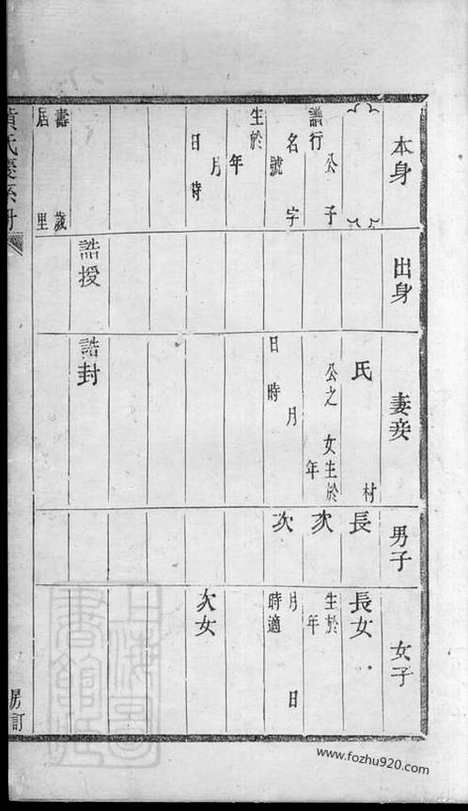 本身
出身
妻妾
男子
女子
氏
村
長
長女
譜行
公子
公之女生於
年
次
生於
年
名字
號
日時
月
次
月日
時適
生於
年
月
日時
次女
誥授
誥封
壽
歲
居
里
黄氏慶系册
房訂
上海圖書館藏
www.fozhu920.com